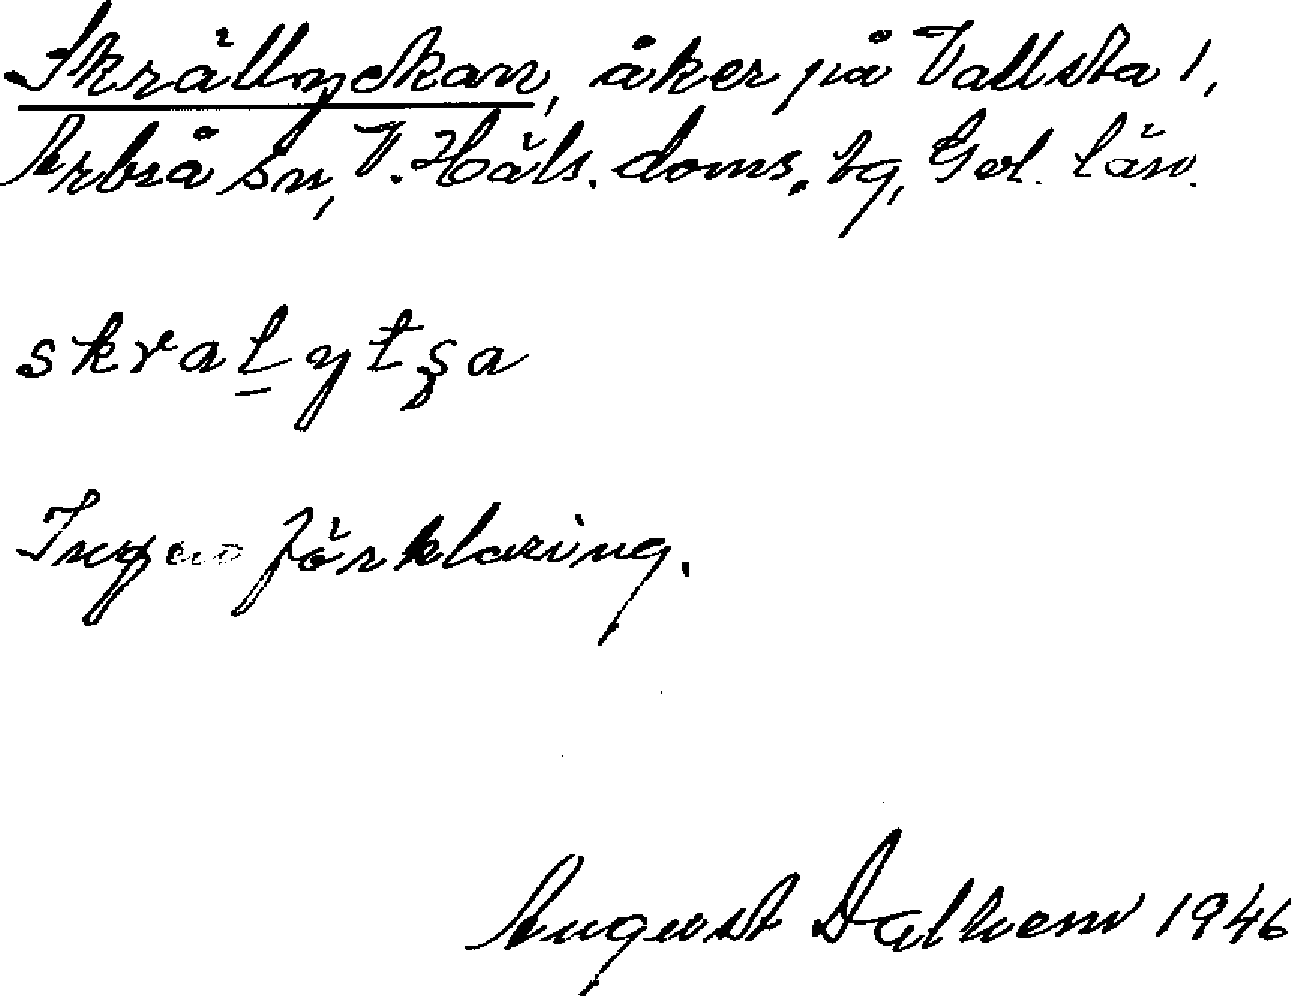 Skrällyckan, åker på Vallsta 1,
Arbrå sn, V. Häls. doms. tg, Gvl. län.
skral̲ytʂa
Ingen förklaring.
August Dalhem 1946